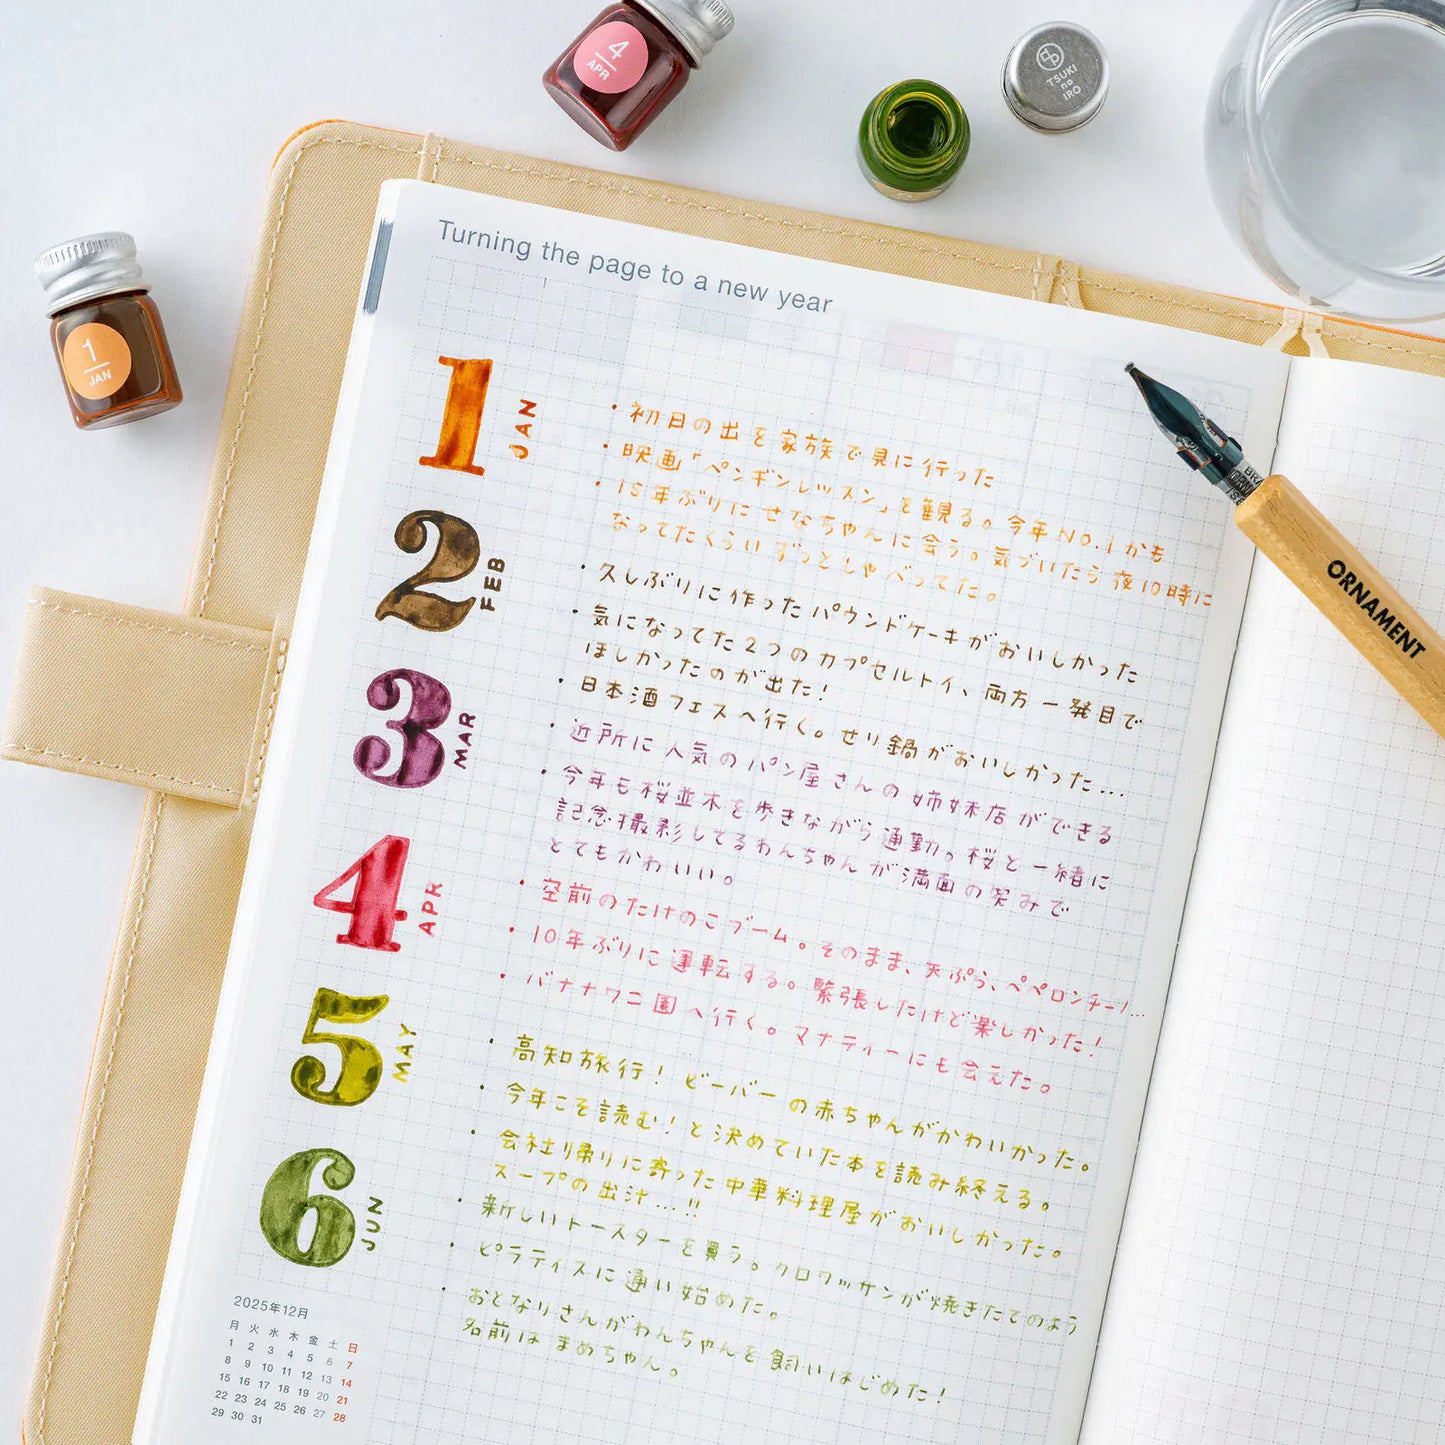 4
APR
TSUKI
no
IRO
1
JAN
Turning the page to a new year
1
JAN
・初日の出を家族で見に行った
・映画「ペンギンレッスン」を観る。今年NO.1かも
・15年ぶりにせなちゃんに会う。気づいたら夜10時に
なってたくらいずっとしゃべってた。
2
FEB
・久しぶりに作ったパウンドケーキがおいしかった
・気になってた2つのカプセルトイ、両方一発目で
ほしかったのが出た!
・日本酒フェスへ行く。せり鍋がおいしかった…
3
MAR
・近所に人気のパン屋さんの姉妹店ができる
・今年も桜並木を歩きながら通勤。桜と一緒に
記念撮影してるわんちゃんが満面の笑みで
とてもかわいい。
4
APR
・空前のたけのこブーム。そのまま、天ぷら、ペペロンチーノ…
・10年ぶりに運転する。緊張したけど楽しかった!
・バナナワニ園へ行く。マナティーにも会えた。
5
MAY
・高知旅行!ビーバーの赤ちゃんがかわいかった。
・今年こそ読む!と決めていた本を読み終える。
・会社帰りに寄った中華料理屋がおいしかった。
スープの出汁…!!
6
JUN
・新しいトースターを買う。クロワッサンが焼きたてのよう
・ピラティスに通い始めた。
・おとなりさんがわんちゃんを飼いはじめた!
名前はまめちゃん。
2025年12月
月 火 水 木 金 土 日
1 2 3 4 5 6 7
8 9 10 11 12 13 14
15 16 17 18 19 20 21
22 23 24 25 26 27 28
29 30 31
ORNAMENT